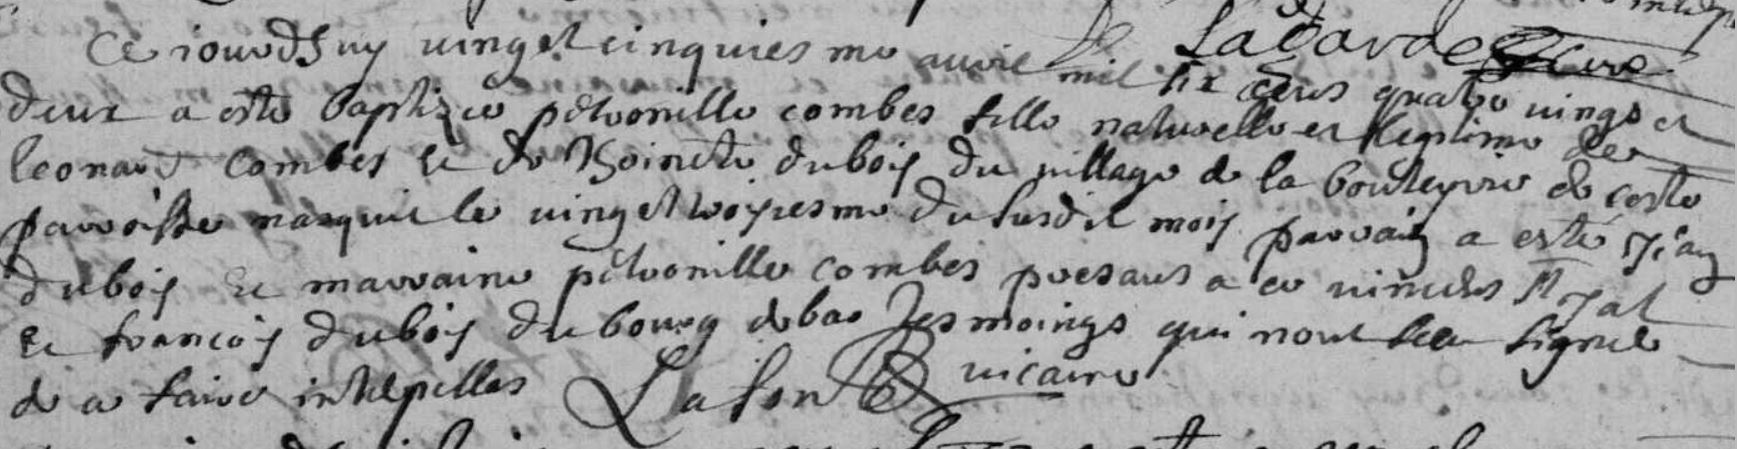 Lagarde Cure
Ce iourdhuy vingt et cinquiesme auril mil six cens quatre vings et
deux a esté baptizée petronille combes fille naturelle et legitime de
leonard combes et de dubois du village de la bouteyrie de ceste
parroisse nasquit le vingt et troysiesme du susdit mois parrain a esté Jean
dubois et marraine petronille combes presans a ce
et francois dubois du bourg debas tesmoings qui nont sceu signer
de ce faire intepelles Lafon vicaire